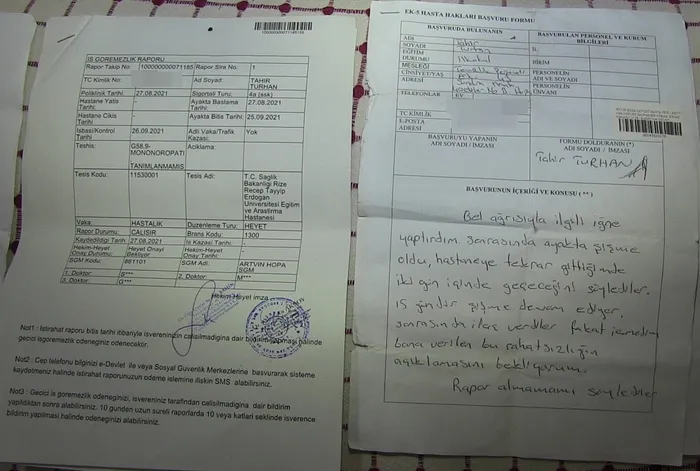 1
10000000000071185
İS GOREMEZLIK RAPORU
Rapor Takip No: 10000000000071185 Rapor Sira No: 1
TC Kimlik No: Ad Soyad: TAHIR TURHAN
Poliklinik Tarihi: 27.08.2021 Sigortali Turu: 4a (ssk)
Hastane Yatis Tarihi - Ayakta Baslama Tarihi: 27.08.2021
Hastane Cikis Tarihi - Ayakta Bitis Tarihi: 25.09.2021
Isbasi/Kontrol Tarihi: 26.09.2021 Adli Vaka/Trafik Kazasi: Yok
Teshis: G58.9- Aciklama:
MONONOROPATI
TANIMLANMAMIS
Tesis Kodu: 11530001 Tesis Adi: T.C. Saglik
Bakanligi Rize
Recep Tayyip
Erdogan
Universitesi Egitim
ve Arastirma
Hastanesi
Vaka: HASTALIK Duzenleme Turu: HEYET
Rapor Durumu: CALISIR Brans Kodu: 1300
Kaydedildigi Tarih: 27.08.2021 Is Kazasi Tarihi: -
Hekim-Heyet Onay Durumu: Heyet Onayi Bekliyor Hekim-Heyet Onay Tarihi: -
SGM Kodu: 881101 SGM Adi: ARTVIN HOPA SGM
1. Doktor: S*** 2. Doktor: M***
3. Doktor: G***
Hekim-Heyet imza
Not1 : Istirahat raporu bitis tarihi itibariyle isvereninizin calisilmadigina dair bildirim yapilmasi halinde
gecici isgoremezlik odeneginiz odenecektir.
Not2 : Cep telefonu bilginizi e-Devlet ile veya Sosyal Guvenlik Merkezlerine basvurarak sisteme
kaydetmeniz halinde istirahat raporunuzun odame islemine iliskin SMS alabilirsiniz.
Not3 : Gecici is goremezlik odeneginizi, isvereniniz tarafindan calisilmadigina dair bildirim
yapildiktan sonra alabilirsiniz. 10 gunden uzun sureli raporlarda 10 veya katlari seklinde isverence
bildirim yapilmasi halinde odeneginizi alabilirsiniz.
EK-5 HASTA HAKLARI BAŞVURU FORMU
BAŞVURUDA BULUNANIN BAŞVURULAN PERSONEL VE KURUM
BİLGİLERİ
ADI
SOYADI İL
EĞİTİM
DURUMU BİRİM
MESLEĞİ
CİNSİYET/YAŞ PERSONELİN
ADRESİ ADI VE SOYADI
PERSONELİN
ÜNVANI
TELEFONLARI EV
TC KİMLİK
E-POSTA
ADRESİ
BAŞVURUYU YAPANIN
ADI SOYADI / İMZASI
FORMU DOLDURANIN (*)
ADI SOYADI / İMZASI
Tahir TURHAN
BAŞVURUNUN İÇERİĞİ VE KONUSU (**)
Bel ağrısıyla ilgili iğne
yaptırdım. sonrasında ayakta şişme
oldu, hastaneye tekrar gittiğimde
iki gün içinde geçeceğini söylediler.
15 gündür şişme devam ediyor.
sonrasında ilaç verdiler fakat içemedim
bana verilen bu rahatsızlığın
açıklamasını bekliyorum.
Rapor almamamı söylediler